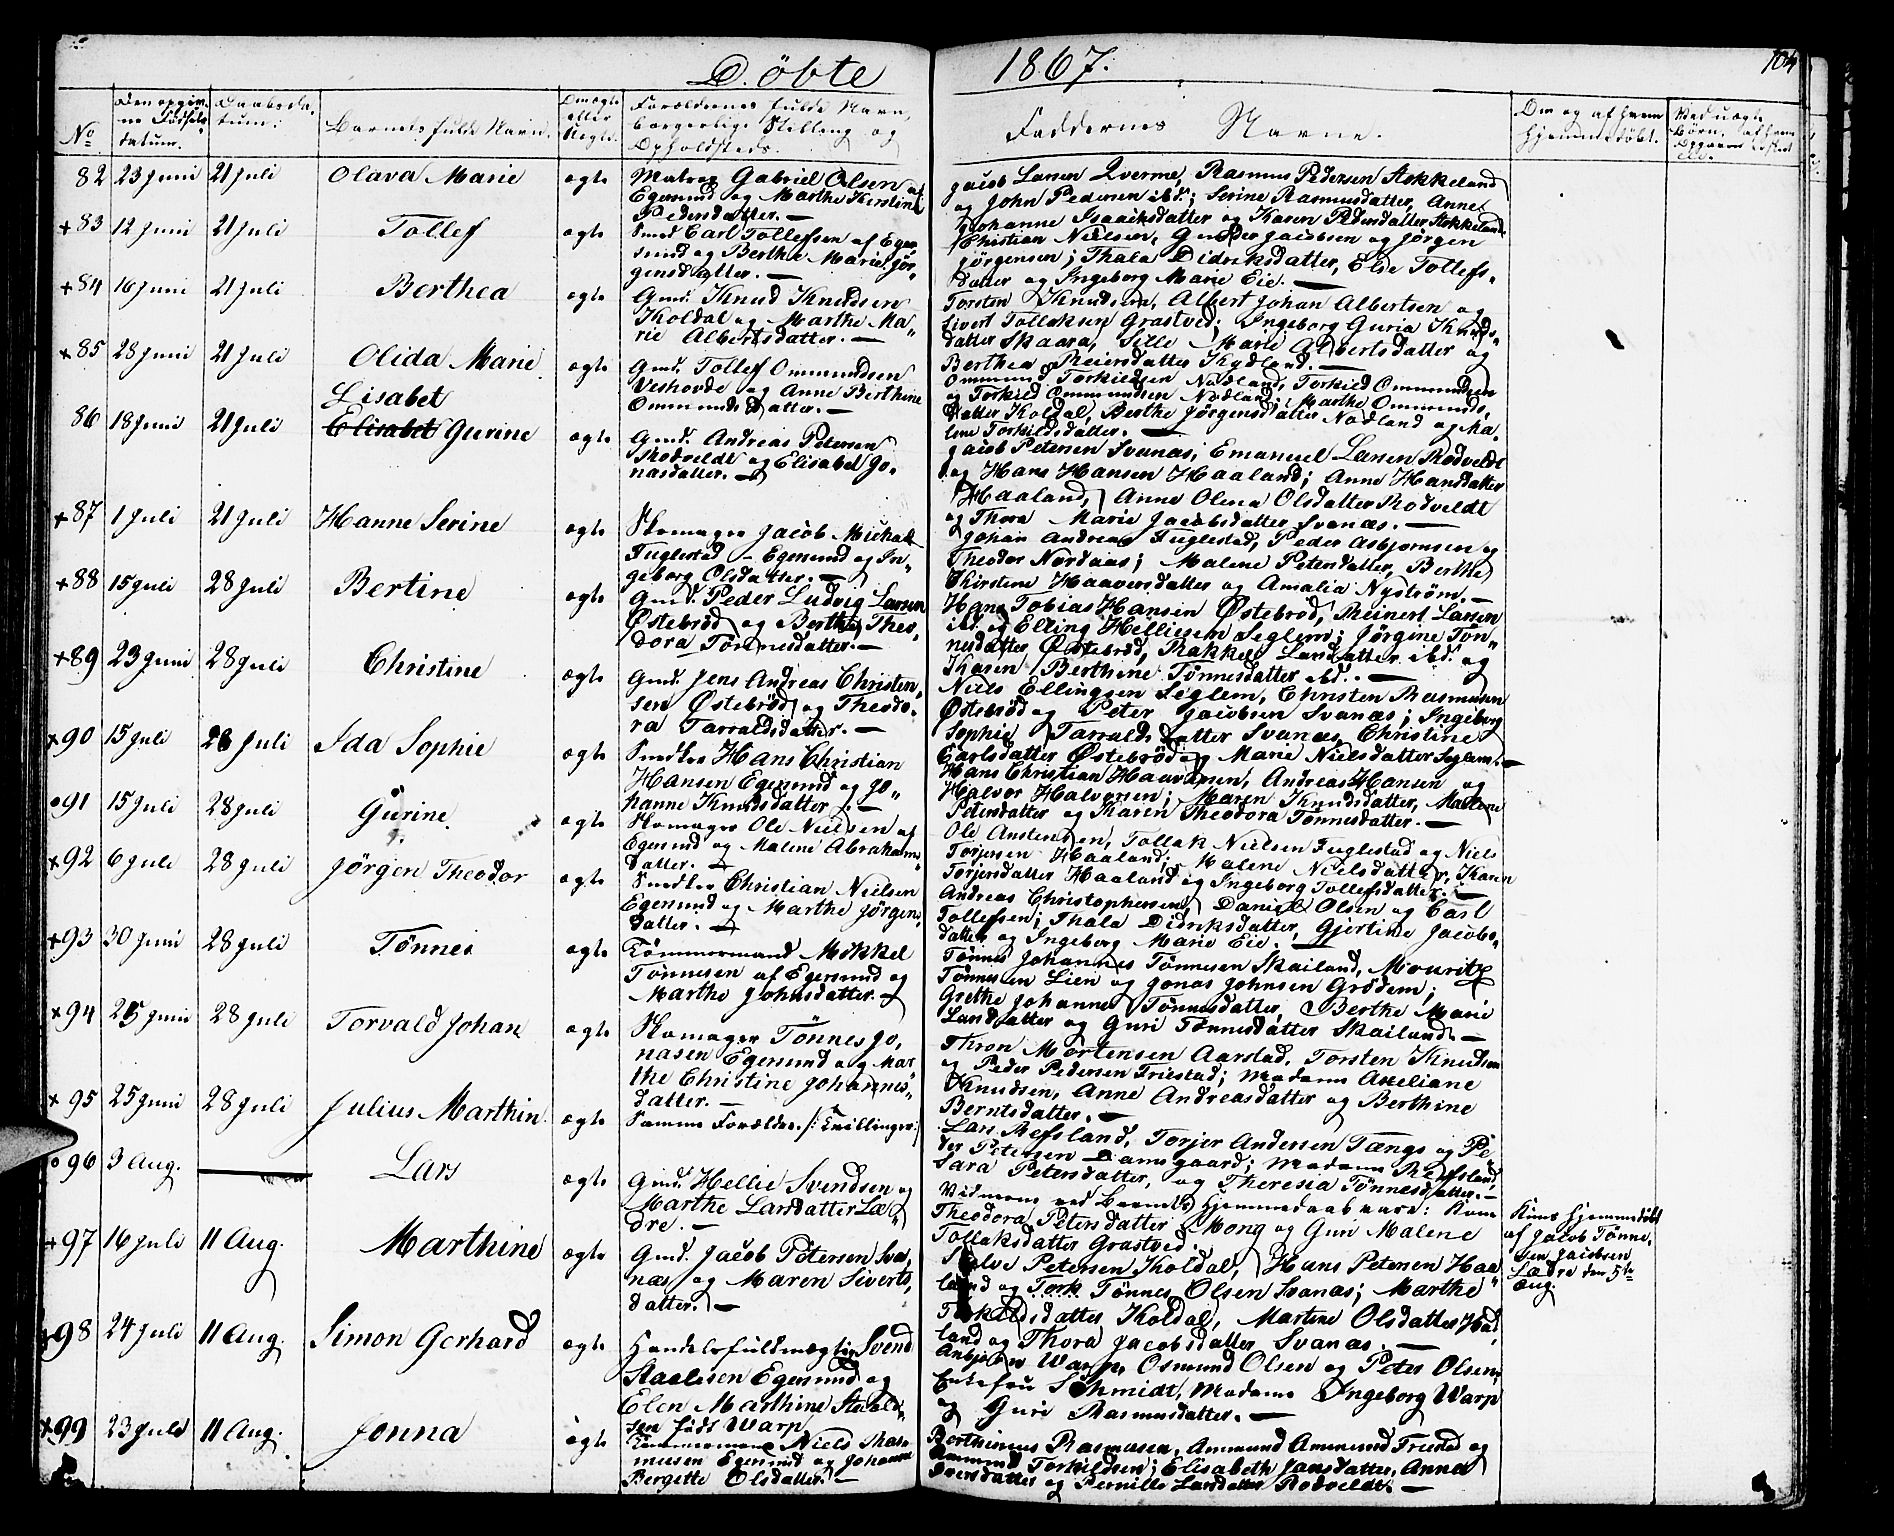 Døbte 1867.
104
No
Den opgivne Fødselsdatum.
Daabsdatum:
Barnets fulde Navn.
Om ægte eller Uægte.
Forældrenes fulde Navn, borgerlige Stilling og Opholdsteds.
Faddernes Navne.
Om og af hvem hjemmedøbt.
82 23 Juni 21 Juli Olava Marie ægte
Matros Gabriel Olsen af
Egersund og Marthe Kirstine
Pedersdatter. —
Jacob Larsen Qverme, Rasmus Pedersen Stokkeland
og John Pedersen ibd; Serine Rasmusdatter, Anne
Johanne Isaachsdatter og Karen Pedersdatter Stokkeland
+83 12 Juni 21 Juli Tollef ægte
Smed Carl Tollefsen af Eger
sund og Berthe Marie Jør
gensdatter. —
Christian Nielsen, Gunder Jacobsen og Jörgen
Jörgensen; Thala Didriksdatter, Else Tollefs-
datter og Ingeborg Marie Eie. —
+84 16 Juni 21 Juli Berthea ægte
Gmd. Knud Knudsen
Koldal og Marthe Ma-
rie Albertsdatter. —
Torsten Knudsen, Albert Johan Albertsen og
Sivert Tollaksen Grastved; Ingeborg Guria Knuds-
datter Skaara, Sille Marie Albertsdatter og
Berthea Reiersdatter Kydland. —
+85 28 Juni 21 Juli Olida Marie ægte
Gmd. Tollef Ommundsen
Veshovde og Anne Berthine
Ommundsdatter. —
Ommund Torkildsen Nodland, Torkild Ommundsen
og Torkild Ommundsen Nodland; Marthe Ommunds,
datter Koldal, Berthe Jörgensdatter Nodland og Ma-
lene Torkildsdatter. —
86 18 Juni 21 Juli Lisabet
Elisabet Gurine ægte
Gmd. Andreas Petersen
Rodveldt og Elisabet Jo-
nasdatter. —
Jacob Petersen Svanæs, Emanuel Larsen Rodveldt
og Hans Hansen Haaland; Anne Hansdatter
Haaland, Anne Olena Olsdatter Rodveldt
og Thora Marie Jacobsdatter Svanæs. —
+87 1 Juli 21 Juli Hanne Serine ægte
Skomager Jacob Michael
Fuglestad - Egersund og In-
geborg Olsdatter. —
Johan Andreas Fuglestad, Peder Asbjørnsen og
Theodor Nordaas; Malene Petersdatter, Berthe
Chirstine Haaversdatter og Amalia Nyström. —
+88 15 Juli 28 Juli Bertine ægte
Gmd. Peder Ludvig Larsen
Østebröd og Berthe Theo-
dora Tönnesdatter. —
Hans Tobias Hansen Østebröd, Meinert Larsen
ibd. og Elling Helliesen Seglem; Jörgine Tön-
nesdatter Østebröd, Rakkel Larsdatter ibd. og
Karen Berthine Tönnesdatter ibd. —
+89 23 Juni 28 Juli Christine ægte
Gmd. Jens Andreas Christen
sen Østebröd og Theodo-
ra Tarraldsdatter. —
Niels Ellingsen Seglem, Christen Rasmussen
Østebröd og Peter Jacobsen Svanæs; Ingeborg
Sophie Tarraldsdatter Svanæs, Christine
Carlsdatter Østebröd og Marie Nielsdatter Seglem. —
+90 15 Juli 28 Juli Ida Sophie ægte
Snedker Hans Christian
Hansen Egersund og Jo-
hanne Knudsdatter. —
Hans Christian Haavarsen, Andreas Hansen og
Halvor Halvorsen; Maren Knudsdatter, Malene
Petersdatter og Karen Theodora Tönnesdatter. —
91 15 Juli 28 Juli Gurine ægte
Skomager Ole Nielsen af
Egersund og Malene Abrahams
datter. —
Ole Anstensen, Tollak Nielsen Fuglestad og Niels
Torjersen Haaland; Malene Nielsdatter, Karen
Torjersdatter Haaland og Ingeborg Tollefsdatter. —
+92 6 Juli 28 Juli Jörgen Theodor ægte
Snedker Christian Nielsen
Egersund og Marthe Jörgens
datter. —
Andreas Christophersen, Daniel Olsen og Carl
Tollefsen; Thala Didriksdatter, Gjertine Jacobs-
datter og Ingeborg Marie Eie. —
+93 30 Juni 28 Juli Tönnes ægte
Tömmermand Mikkel
Tönnesen af Egersund og
Marthe Johnsdatter. —
Tönnes Johannes Tönnesen Skailand, Mouritz
Tönnesen Lien og Jonas Johnsen Grödem;
Grethe Johanne Tönnesdatter, Berthe Marie
Larsdatter og Guri Tönnesdatter Skailand. —
+94 25 Juni 28 Juli Torvald Johan ægte
Skomager Tönnes Jo,
nasen Egersund og Mar
the Christine Johannes-
datter. —
Thron Mortensen Aarstad, Torsten Knudsen
og Peder Pedersen Friestad; Madame Axeliane
Knudsen, Anne Andreasdatter og Berthine
Berntsdatter. —
+95 25 Juni 28 Juli Julius Marthin ægte
Samme Forældre. /: Tvillinger :/
Lars Refsland, Torjer Andersen Tængs og Pe
der Petersen Damsgaard; Madame Refsland,
Sara Petersdatter, og Theresia Tönnesdatter. —
96 3 Aug. — Lars ægte
Gmd. Hellie Svendsen og
Marthe Larsdatter Læ-
dre. —
Vidnerne ved Barnets Hjemmedaab vare: Kone
Theodora Petersdatter Mong og Guri Malene
Tollaksdatter Grastved.
Kuns hjemmedøbt
af Jacob Tönne-
sen Jacobsen
Lædre den 5te
Aug.
+97 16 Juli 11 Aug. Marthine ægte
Gmd. Jacob Petersen Sva,
næs og Maren Siverts,
datter. —
Salve Petersen Koldal, Hans Petersen Haa
land og Tönnes Olsen Svanæs; Marthe
Torkildsdatter Koldal, Martine Olsdatter Haa,
land og Thora Jacobsdatter Svanæs. —
+98 24 Juli 11 Aug. Simon Gerhard ægte
Handelsfuldmægtig Svend
Staalesen Egersund og
Elen Marthine Staale-
sen født Warp
Anbjørn Warp, Osmund Olsen og Peter Olsen,
Enkefru Schmidt, Madame Ingeborg Warp
og Guri Rasmusdatter. —
+99 23 Juli 11 Aug. Jonna ægte
Tömmermand Niels Ras-
mussen Egersund og Johanne
Bergette Olsdatter. —
Berthinius Rasmussen, Ammund Ammund Friestad og
Ommund Torkildsen; Elisabeth Jansdatter, Anna
Iversdatter og Pernille Larsdatter Rodveldt. —